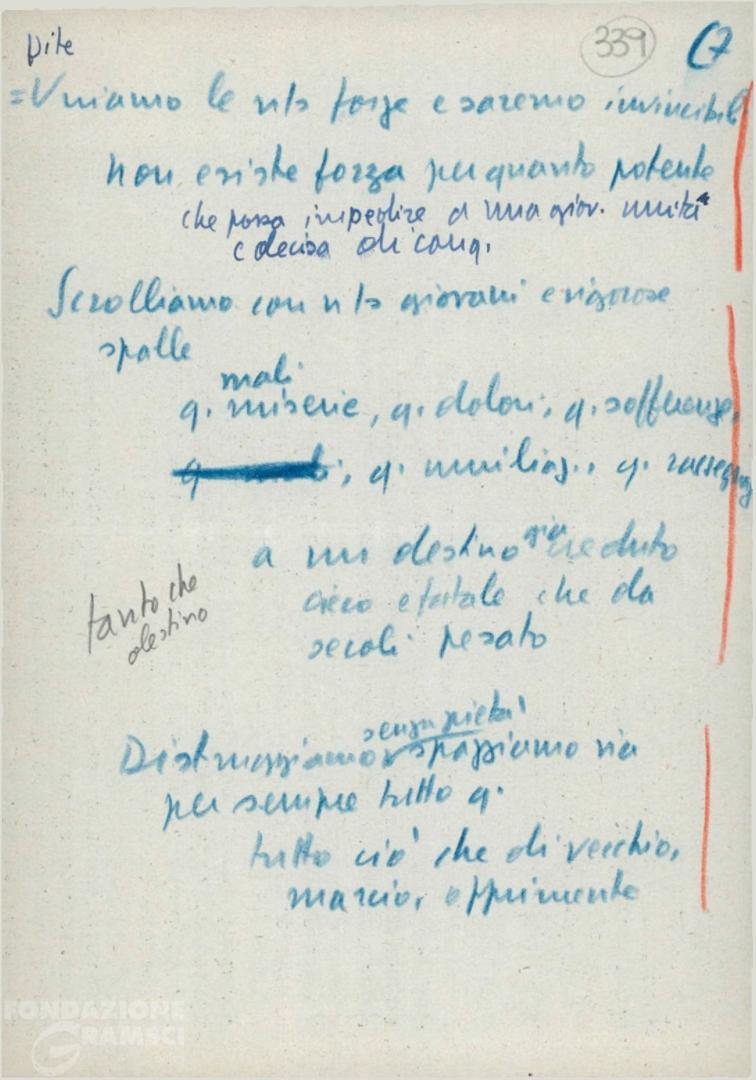 Dite
339
67
= Uniamo le nts forze e saremo invincibili
non esiste forza per quanto potente
che possa impedire a una giov. unita
e decisa di conq.
Scrolliamo con nts giovani e vigorose
spalle
mali
q. miserie, q. dolori, q. sofferenze,
q. umiliaz., q. rassegnaz
a un destino già creduto
cieco e fatale che da
secoli pesato
tanto che
destino
senza pietà
Distruggiamo spazziamo via
per sempre tutto q.
tutto ciò che di vecchio,
marcio, opprimente
FONDAZIONE
GRAMSCI